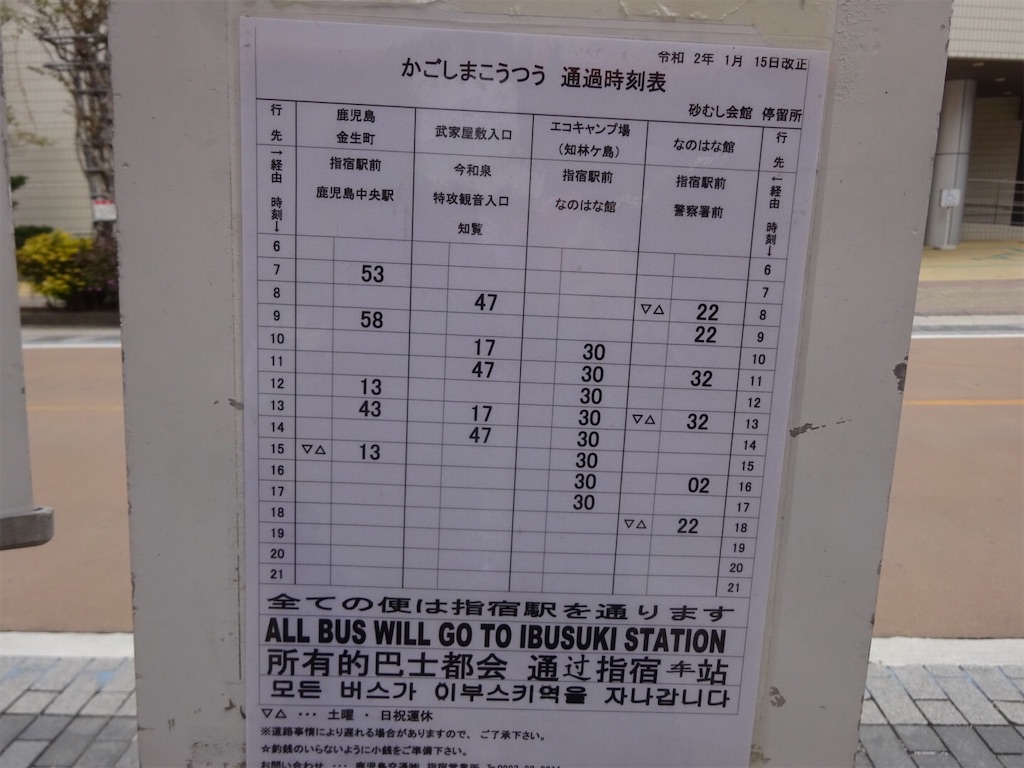 令和 2年 1月 15日改正
かごしまこうつう 通過時刻表
砂むし会館 停留所
行先 鹿児島 金生町 武家屋敷入口 エコキャンプ場 (知林ケ島) なのはな館 行先
→経由 時刻↓ 指宿駅前 鹿児島中央駅 今和泉 特攻観音入口 知覧 指宿駅前 なのはな館 指宿駅前 警察署前 ←経由 時刻↓
6 6
7 53 7
8 47 ▽△ 22 8
9 58 22 9
10 17 30 10
11 47 30 32 11
12 13 30 12
13 43 17 30 ▽△ 32 13
14 47 30 14
15 ▽△ 13 30 15
16 30 02 16
17 30 17
18 ▽△ 22 18
19 19
20 20
21 21
全ての便は指宿駅を通ります
ALL BUS WILL GO TO IBUSUKI STATION
所有的巴士都会 通过指宿 车站
모든 버스가 이부스키역을 자나갑니다
▽△ ・・・ 土曜 ・ 日祝運休
※道路事情により遅れる場合がありますので、ご了承下さい。
☆釣銭のいらないように小銭をご準備下さい。
お問い合わせ ・・・ 鹿児島交通㈱ 指宿営業所